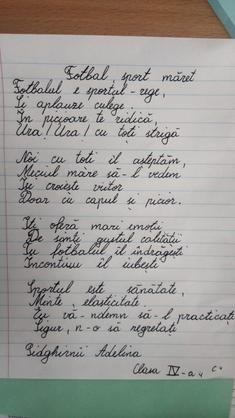 Fotbal, sport măreț
Fotbalul e sportul - rege,
Și aplauze culege.
În picioare te ridică,
Ura! Ura! cu toți strigă
Noi cu toți îl așteptăm,
Meciul mare să-l vedem
Își croiește viitor
Doar cu capul și picior.
Îți oferă mari emoții
De simți gustul calității
Tu fotbalul îl îndrăgești
Încontinuu îl iubești
Sportul este sănătate,
Minte, elasticitate.
Eu vă-ndemn să-l practicați
Sigur, n-o să regretați
Gidghirnii Adelina
Clasa IV-a „C"